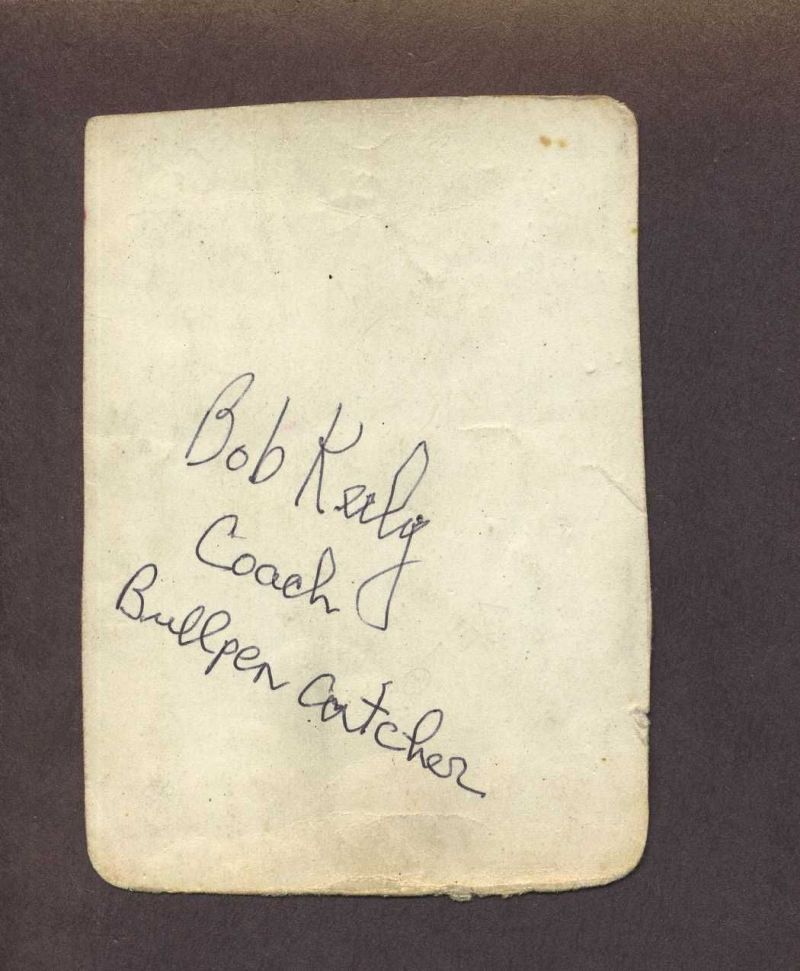 Bob Keely
Coach
Bullpen Catcher